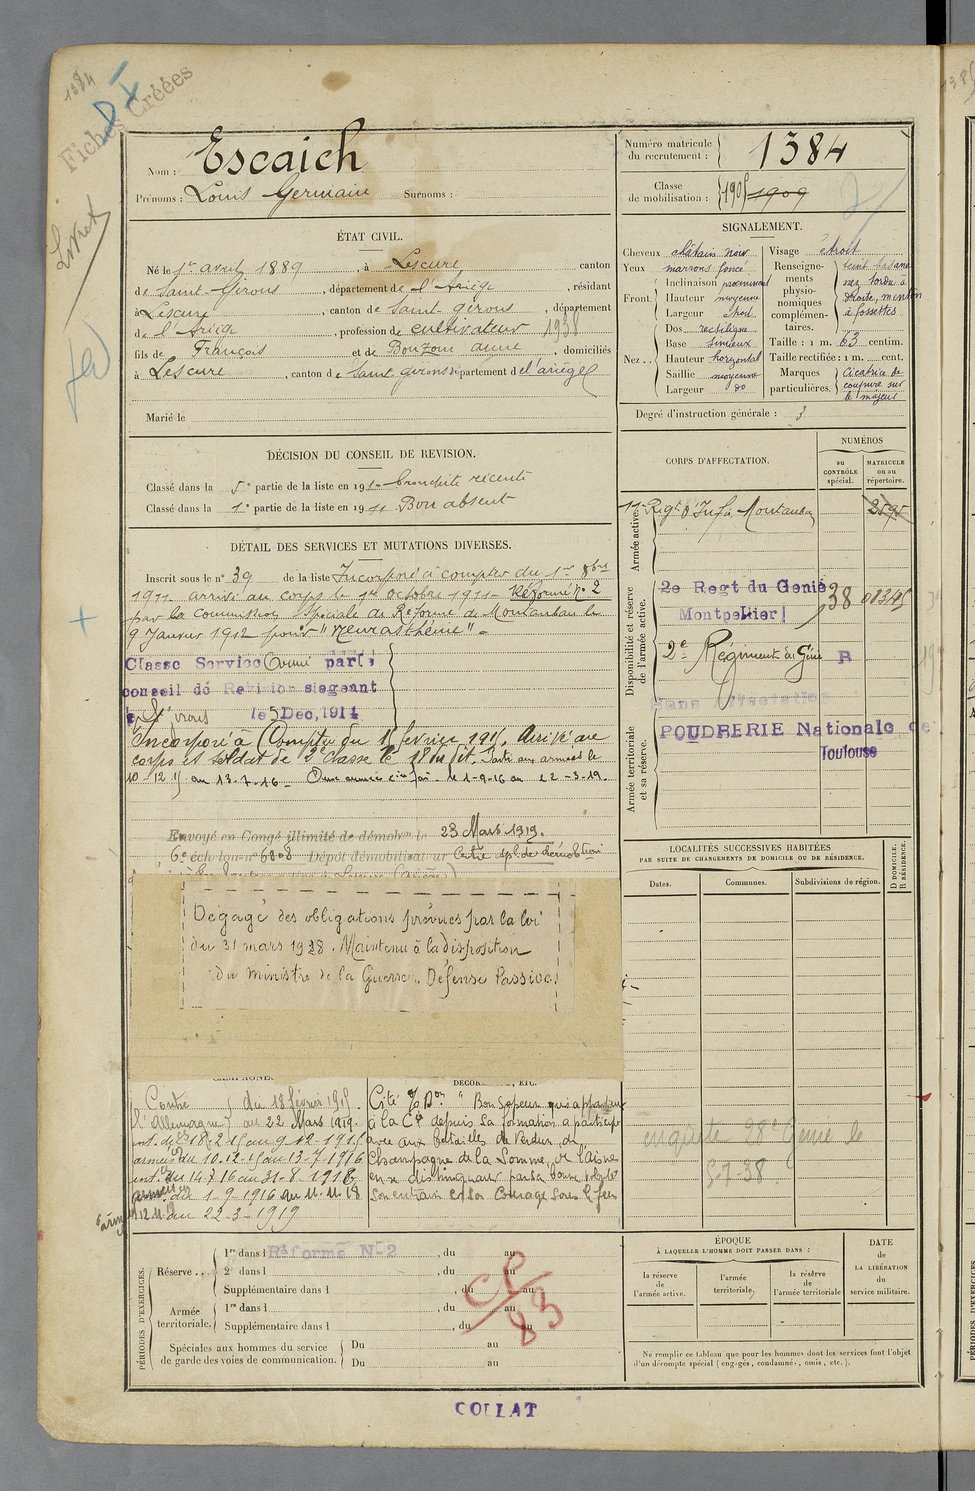 1384
Fiches Créées
Livret
Nom : Escaich
Prénoms : Louis Germain Surnoms :
Numéro matricule du recrutement : 1384
Classe de mobilisation : 1909
ÉTAT CIVIL.
Né le 1er avril 1889, à Lescure canton
de Saint-Girons, département de l'Ariège, résidant
à Lescure, canton de Saint Girons, département
de l'Ariège, profession de cultivateur 1938
fils de François et de Bouzom anne, domiciliés
à Lescure, canton de Saint Girons département de l'ariège
Marié le
SIGNALEMENT.
Cheveux châtain noir
Yeux marrons foncé
Front. Inclinaison
Hauteur moyenne
Largeur étroit
Nez . . Dos rectiligne
Base sinueux
Hauteur horizontal
Saillie moyenne
Largeur do
Visage étroit
Renseignements physionomiques complémentaires. teint basané
nez tordu à
droite, menton
à fossettes
Taille : 1 m. 63 centim.
Taille rectifiée : 1 m. cent.
Marques particulières. Cicatrice de
coupure sur
le majeur
Degré d'instruction générale : 3
DÉCISION DU CONSEIL DE REVISION.
Classé dans la 5e partie de la liste en 191 bronchite récente
Classé dans la 1e partie de la liste en 1911 Bon absent
DÉTAIL DES SERVICES ET MUTATIONS DIVERSES.
Inscrit sous le n° 39 de la liste Incorporé à compter du 1er 8bre
1911 arrivé au corps le 1er octobre 1911 Réformé n° 2
par la commission spéciale de Réforme de Montauban le
9 Janvier 1912 pour "Neurasthénie" -
Classé Service Armé par le
conseil de Revision siegeant
à St Girons le 5 Dec, 1914
Incorporé à Compter du
corps et soldat de 2e classe le Parti aux armées le
10 12 15 au 13-7-16 le 1-9-16 au 22-3-19.
Envoyé en Congé illimité de démobon le 23 Mars 1919.
6e échelon n° 6808 Dépôt démobilisateur Centre spl de démobilisation
Dégagé des obligations prévues par la loi
du 31 mars 1928. Maintenu à la disposition
du Ministre de la Guerre. Défense Passive
CORPS D'AFFECTATION.
NUMÉROS
au CONTRÔLE spécial.
MATRICULE ou au répertoire.
Armée active.
11e Regt d'Infie Montauban 2595
Disponibilité et réserve de l'armée active.
2e Regt du Genie 38 08345
Montpellier
2e Régiment du Génie R
Armée territoriale et sa réserve.
Sans Affectation
POUDRERIE Nationale de
Toulouse
LOCALITÉS SUCCESSIVES HABITÉES
PAR SUITE DE CHANGEMENTS DE DOMICILE OU DE RÉSIDENCE.
Dates.
Communes.
Subdivisions de région.
D DOMICILE.
R RÉSIDENCE.
enquête 28e Génie le
5-7-38
CAMPAGNES
Contre l'Allemagne du 18 février 1915
au 22 Mars 1919.
int. du 18-2-15 au 9-12-1915
armées du 10.12.15 au 13-7-1916
int. du 14.7.16 au 31-8-1916
armées du 1-9-1916 au 11.11.18
armées 12.11.18 au 22-3-1919
DÉCORATIONS, ETC.
Cité "Bon Sapeur qui appartient
à la Cie depuis sa formation a participé
avec aux batailles de Verdun, de
Champagne de la Somme, de l'Aisne
en se distinguant par sa bonne volonté
son entrain et son courage sous le feu
PÉRIODES D'EXERCICES.
Réserve . . . 1re dans l Réformé N° 2, du au
2e dans l , du au
Supplémentaire dans l , du au
Armée territoriale. 1re dans l , du au
Supplémentaire dans l , du au
Spéciales aux hommes du service de garde des voies de communication. Du au
Du au
ÉPOQUE
À LAQUELLE L'HOMME DOIT PASSER DANS :
la réserve de l'armée active.
l'armée territoriale.
la réserve de l'armée territoriale
DATE de LA LIBÉRATION du service militaire.
Ne remplir ce tableau que pour les hommes dont les services font l'objet
d'un décompte spécial (engagés, condamnés, omis, etc.).
COLLAT